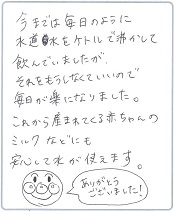 今までは毎日のように
水道水をケトルで沸かして
飲んでいましたが、
それをもうしなくていいので
毎日が楽になりました。
これから産まれてくる赤ちゃんの
ミルクなどにも
安心して水が使えます。
ありがとう
ございました!